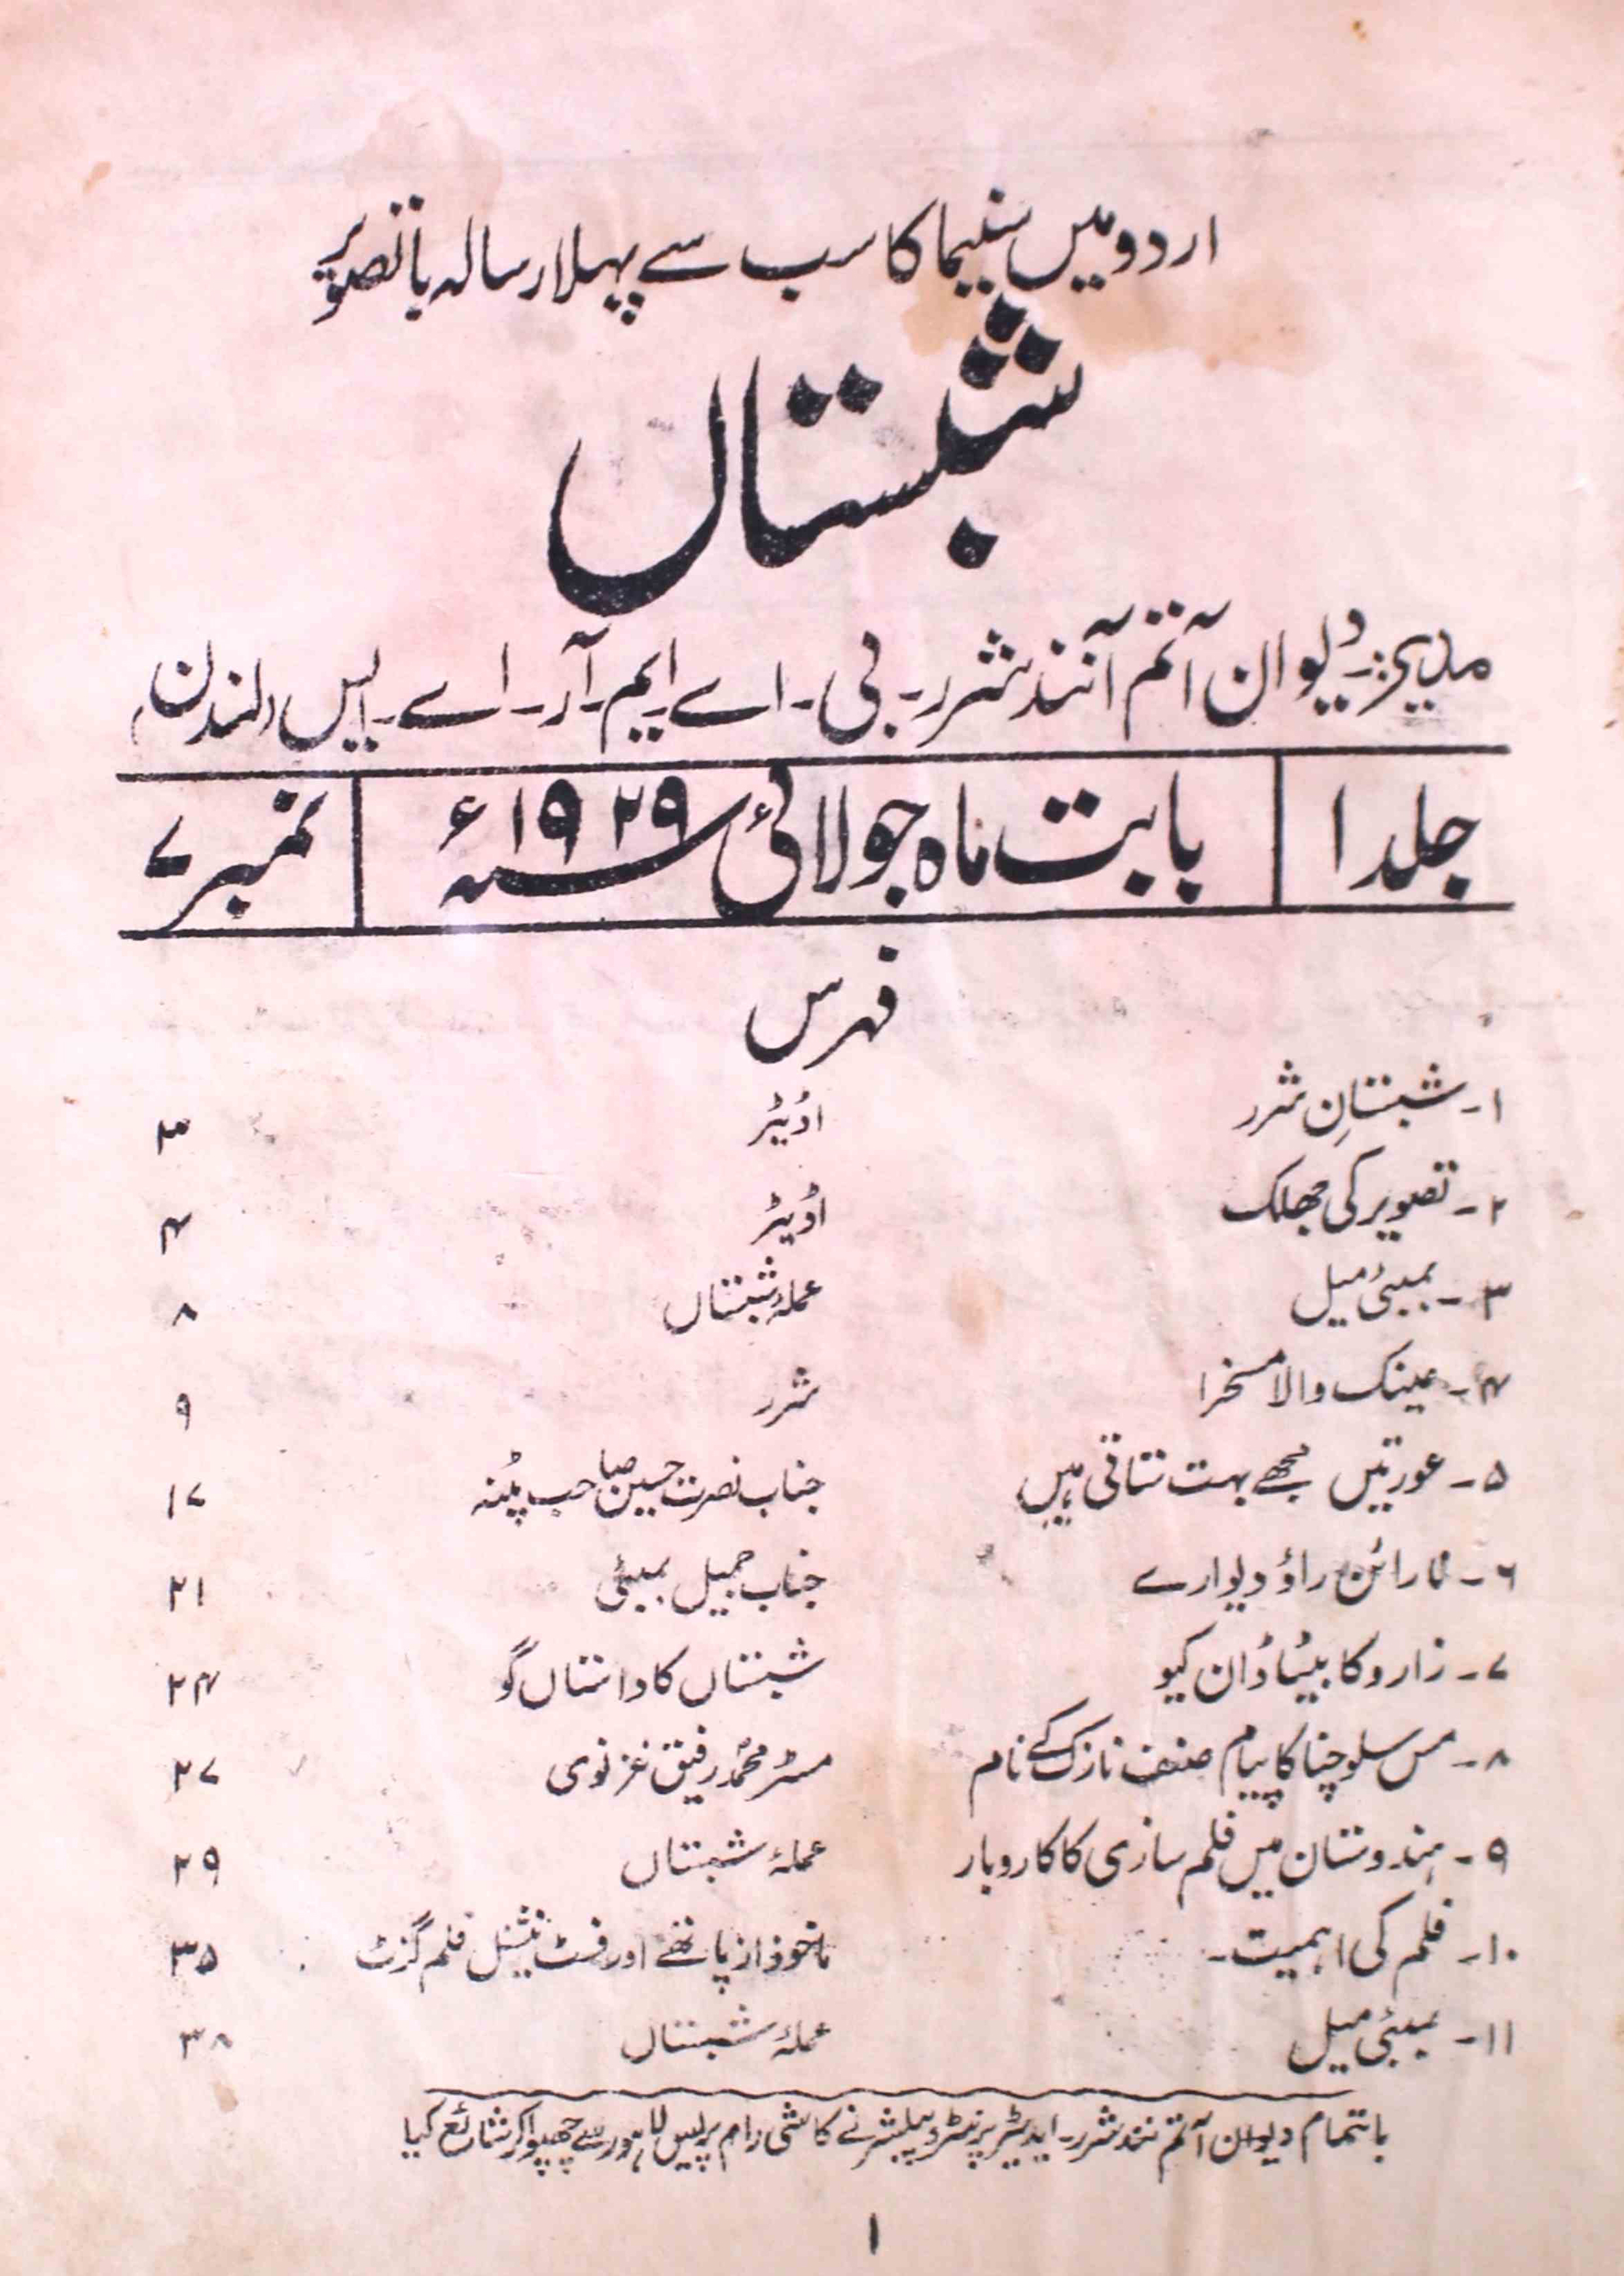 اردو میں سنیما کا سب سے پہلا رسالہ باتصویر
شبستاں
مدیر:۔ دیوان آتم آنند شرر۔ بی۔ اے۔ ایم۔ آر۔ اے۔ ایس (لندن)
جلد ۱ | بابت ماہ جولائی سنہ ۱۹۲۹ء | نمبر ۷
فہرس
۱۔ شبستانِ شرر اڈیٹر ۳
۲۔ تصویر کی جھلک اڈیٹر ۴
۳۔ بمبئی میل عملۂ شبستاں ۸
۴۔ عینک والا مسخرا شرر ۹
۵۔ عورتیں مجھے بہت ستاتی ہیں جناب نصرت حسین صاحب پٹنہ ۱۷
۶۔ نارائن راؤ دیوارے جناب جمیل بمبئی ۲۱
۷۔ زارو کا بیٹا ڈان کیو شبستاں کا داستاں گو ۲۴
۸۔ مس سلوچنا کا پیام صنف نازک کے نام مسٹر محمد رفیق غزنوی ۲۷
۹۔ ہندوستان میں فلم سازی کا کاروبار عملۂ شبستاں ۲۹
۱۰۔ فلم کی اہمیت۔ ماخوذ از پاتھے اور فسٹ نیشنل فلم گزٹ ۳۵
۱۱۔ بمبئی میل عملۂ شبستاں ۳۸
باتہمام دیوان آتم نند شرر۔ ایڈیٹر پرنٹر و پبلشر نے کاشی رام پریس لاہور سے چھپوا کر شائع کیا
۱